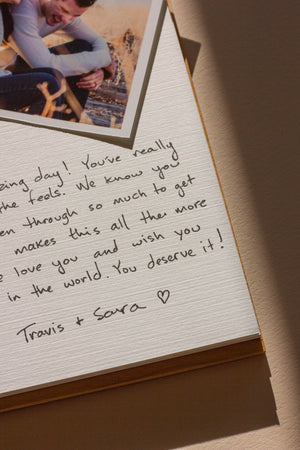 zing day! You've really
the feels. We know you
en through so much to get
makes this all the more
e love you and wish you
in the world. You deserve it!
Travis + Sara ♡